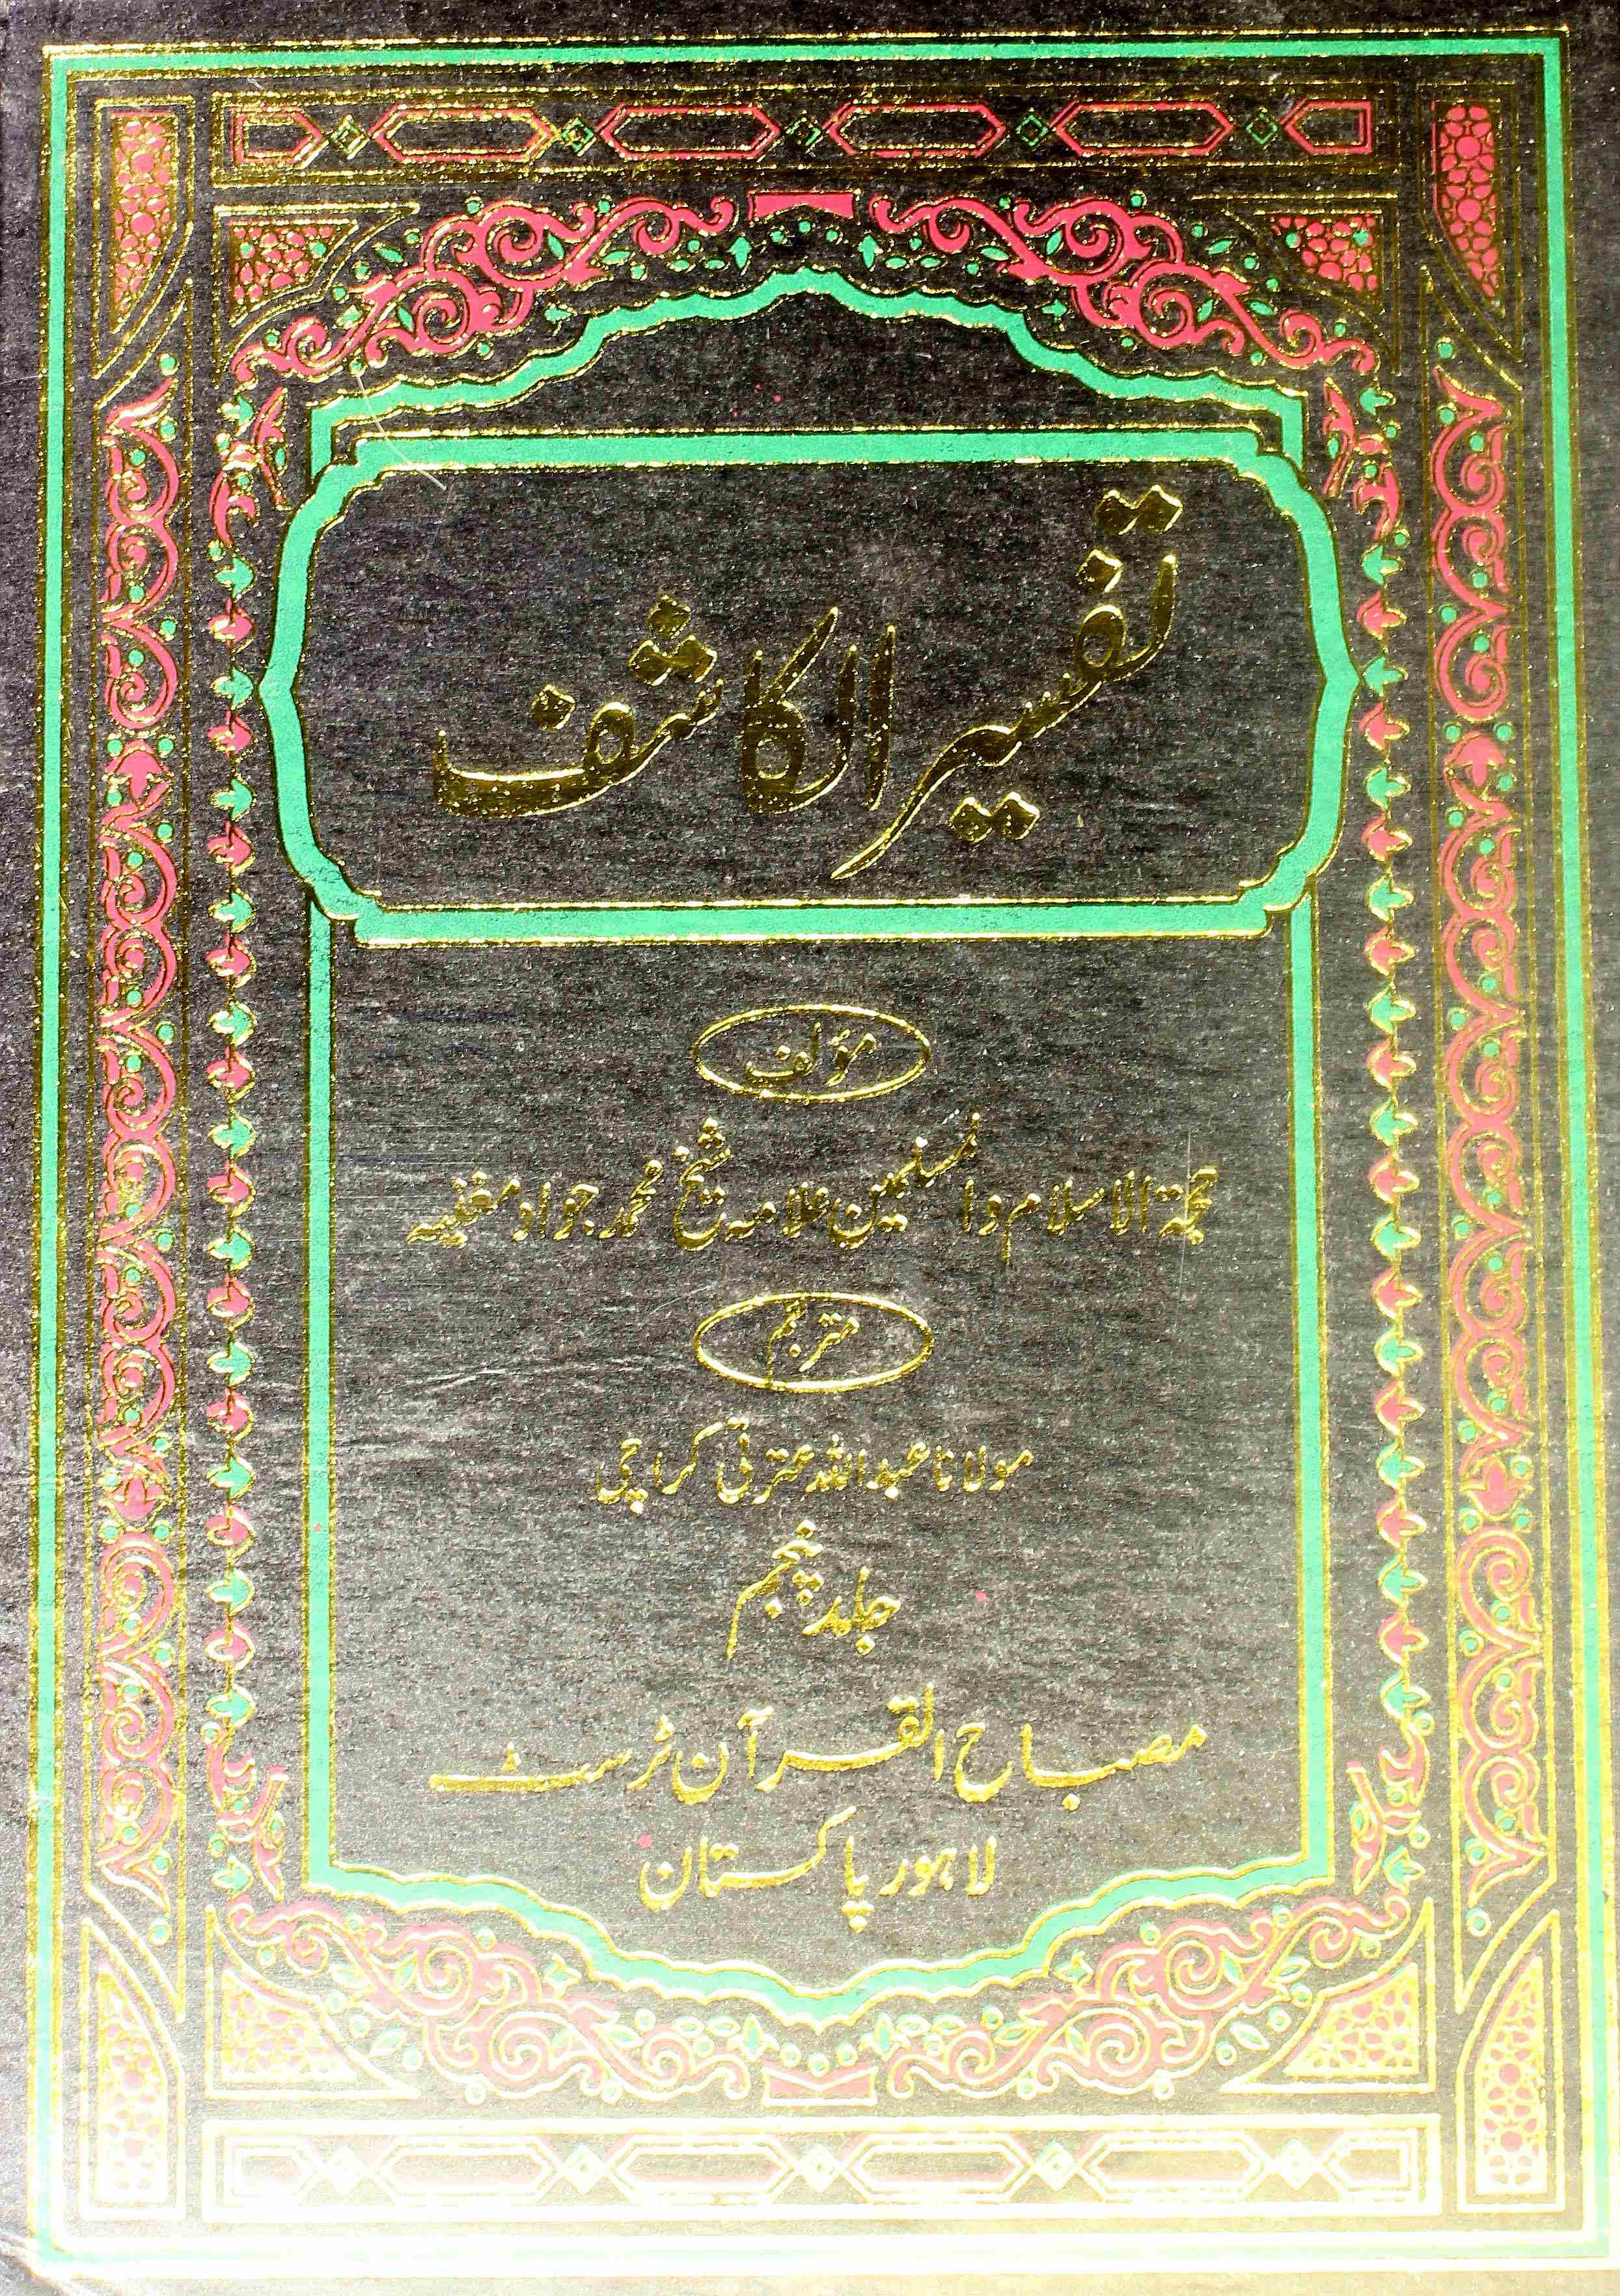 تفسیر الکاشف
مؤلف
حجۃ الاسلام والمسلمین علامہ شیخ محمد جواد مغنیہ
مترجم
مولانا عبداللہ عترتی کراچی
جلد پنجم
مصباح القرآن ٹرسٹ
لاہور پاکستان